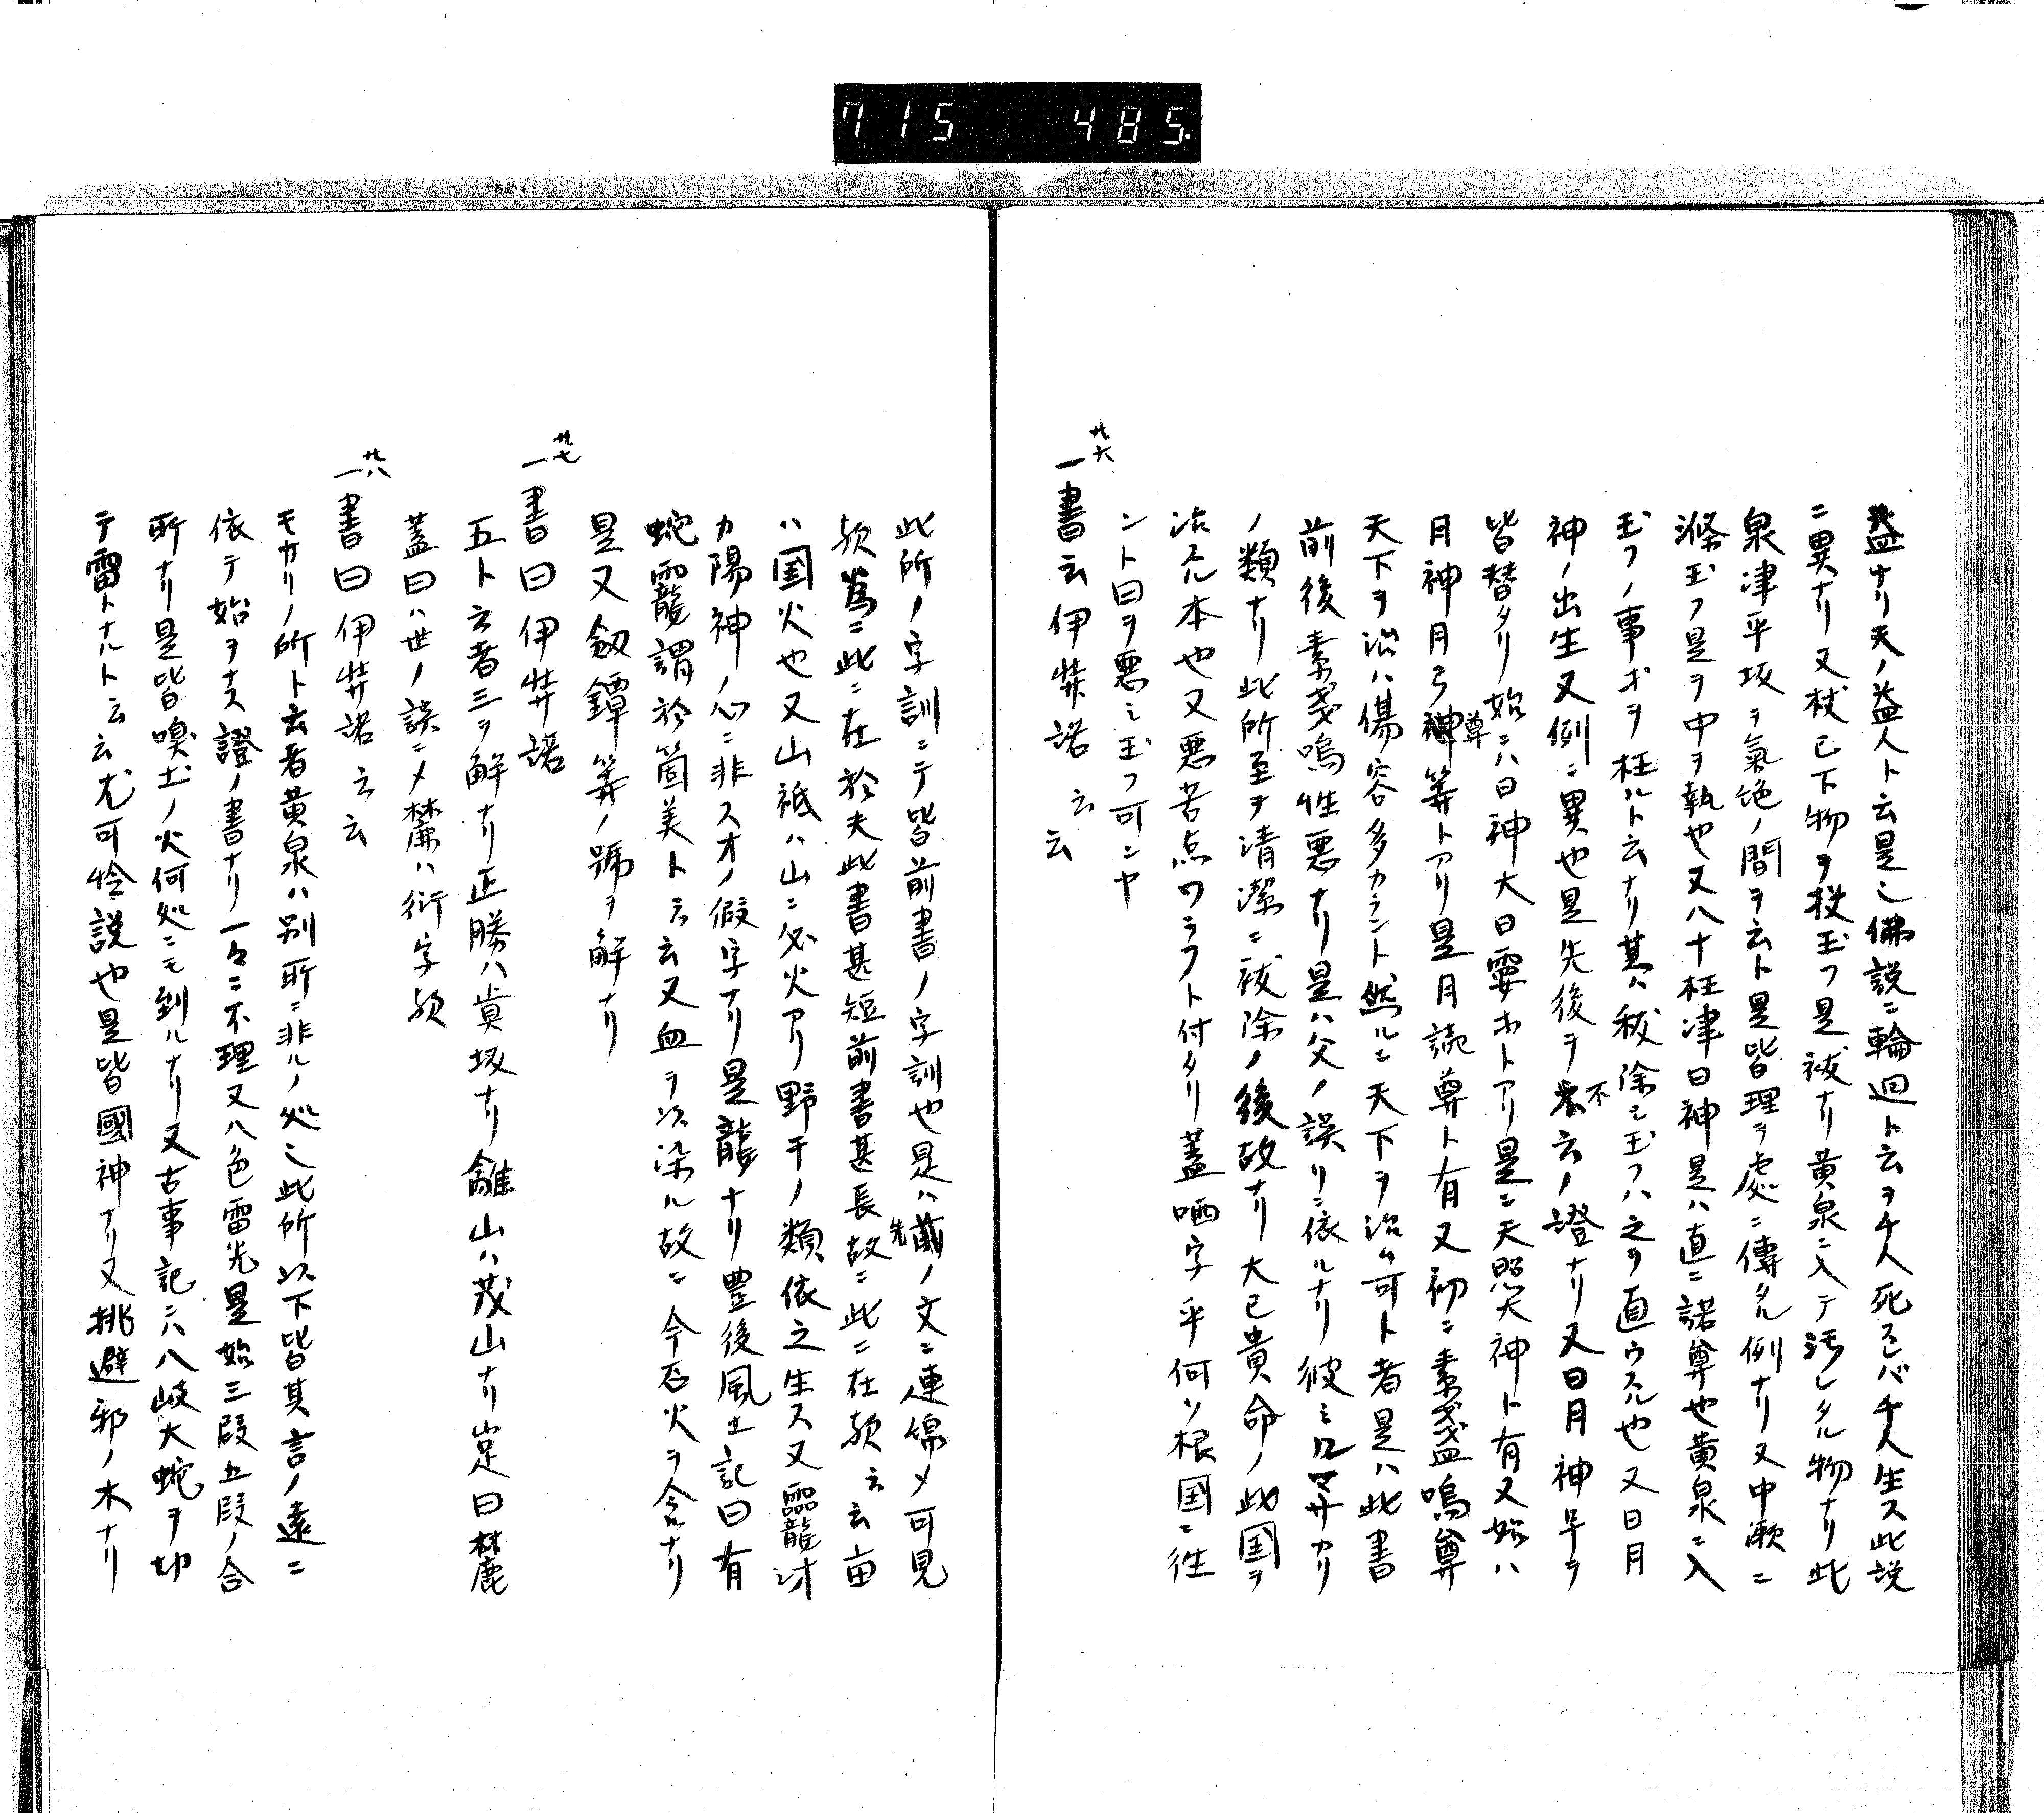 715 485
益ナリ天ノ益人ト云是ニ佛説ニ輪廻ト云ヲ千人死スレバ千人生ス此説
ニ異ナリ又杖已下物ヲ投玉フ是祓ナリ黄泉ニ入テ汚レタル物ナリ此
泉津平坂ヲ氣絶ノ間ヲ云ト是皆理ヲ處ニ傳タル例ナリ又中瀬ニ
滌玉フ是ヲ中ヲ執也又八十枉津日神是ハ直ニ諾尊也黄泉ニ入
玉フノ事ヲ枉ルト云ナリ其ハ秡除シ玉フハ之ヲ直ウスル也又日月
神ノ出生又例ニ異也是先後ヲ不云ノ證ナリ又日月神早ヲ
皆替タリ始ニハ日神大日孁ホトアリ是ニ天照大神ト有又始ハ
月神月弓尊等トアリ是月読尊ト有又初ニ素戔嗚尊
天下ヲ治ハ傷容多カラント然ルニ天下ヲ治ム可ト者是ハ此書
前後素戔嗚性悪ナリ是ハ父ノ誤リニ依ルナリ彼ミルマサカリ
ノ類ナリ此所至ヲ清潔ニ祓除ノ後故ナリ大己貴命ノ此国ヲ
治スル本也又悪苦点ワラフト付タリ蓋哂字乎何ソ根国ニ往
ント曰ヲ悪ミ玉フ可ンヤ
廿六
一書云伊弉諾云云
此所ノ字訓ニテ皆前書ノ字訓也是ハ先ノ文ニ連綿メ可見
歟為ニ此ニ在於夫此書甚短前書甚長故ニ此ニ在歟云云
ハ国火也又山祇ハ山ニ必火アリ野干ノ類依之生ス又靇
カ陽神ノ心ニ非スオノ假字ナリ是龍ナリ豊後風土記曰有
蛇龗謂於箇美ト云云又血ヲ以染ル故ニ今石火ヲ含ナリ
是又劔鐔等ノ號ヲ解ナリ
廿七
一書曰伊弉諾
五ト云者三ヲ解ナリ正勝ハ真坂ナリ離山ハ茂山ナリ豈曰麓
蓋曰ハ世ノ誤ニメ簾ハ衍字歟
廿八
一書曰伊弉諾云云
モカリノ所ト云者黄泉ハ別所ニ非ルノ処ニ此所以下皆其言ノ遠ニ
依テ始ヲナス證ノ書ナリ一々ニ不理又八色雷光是始三段五段ノ合
所ナリ是皆嗅土ノ火何処ニモ到ルナリ又古事記ニハ八岐大蛇ヲ切
テ雷トナルト云云尤可怪説也是皆國神ナリ又桃避邪ノ木ナリ